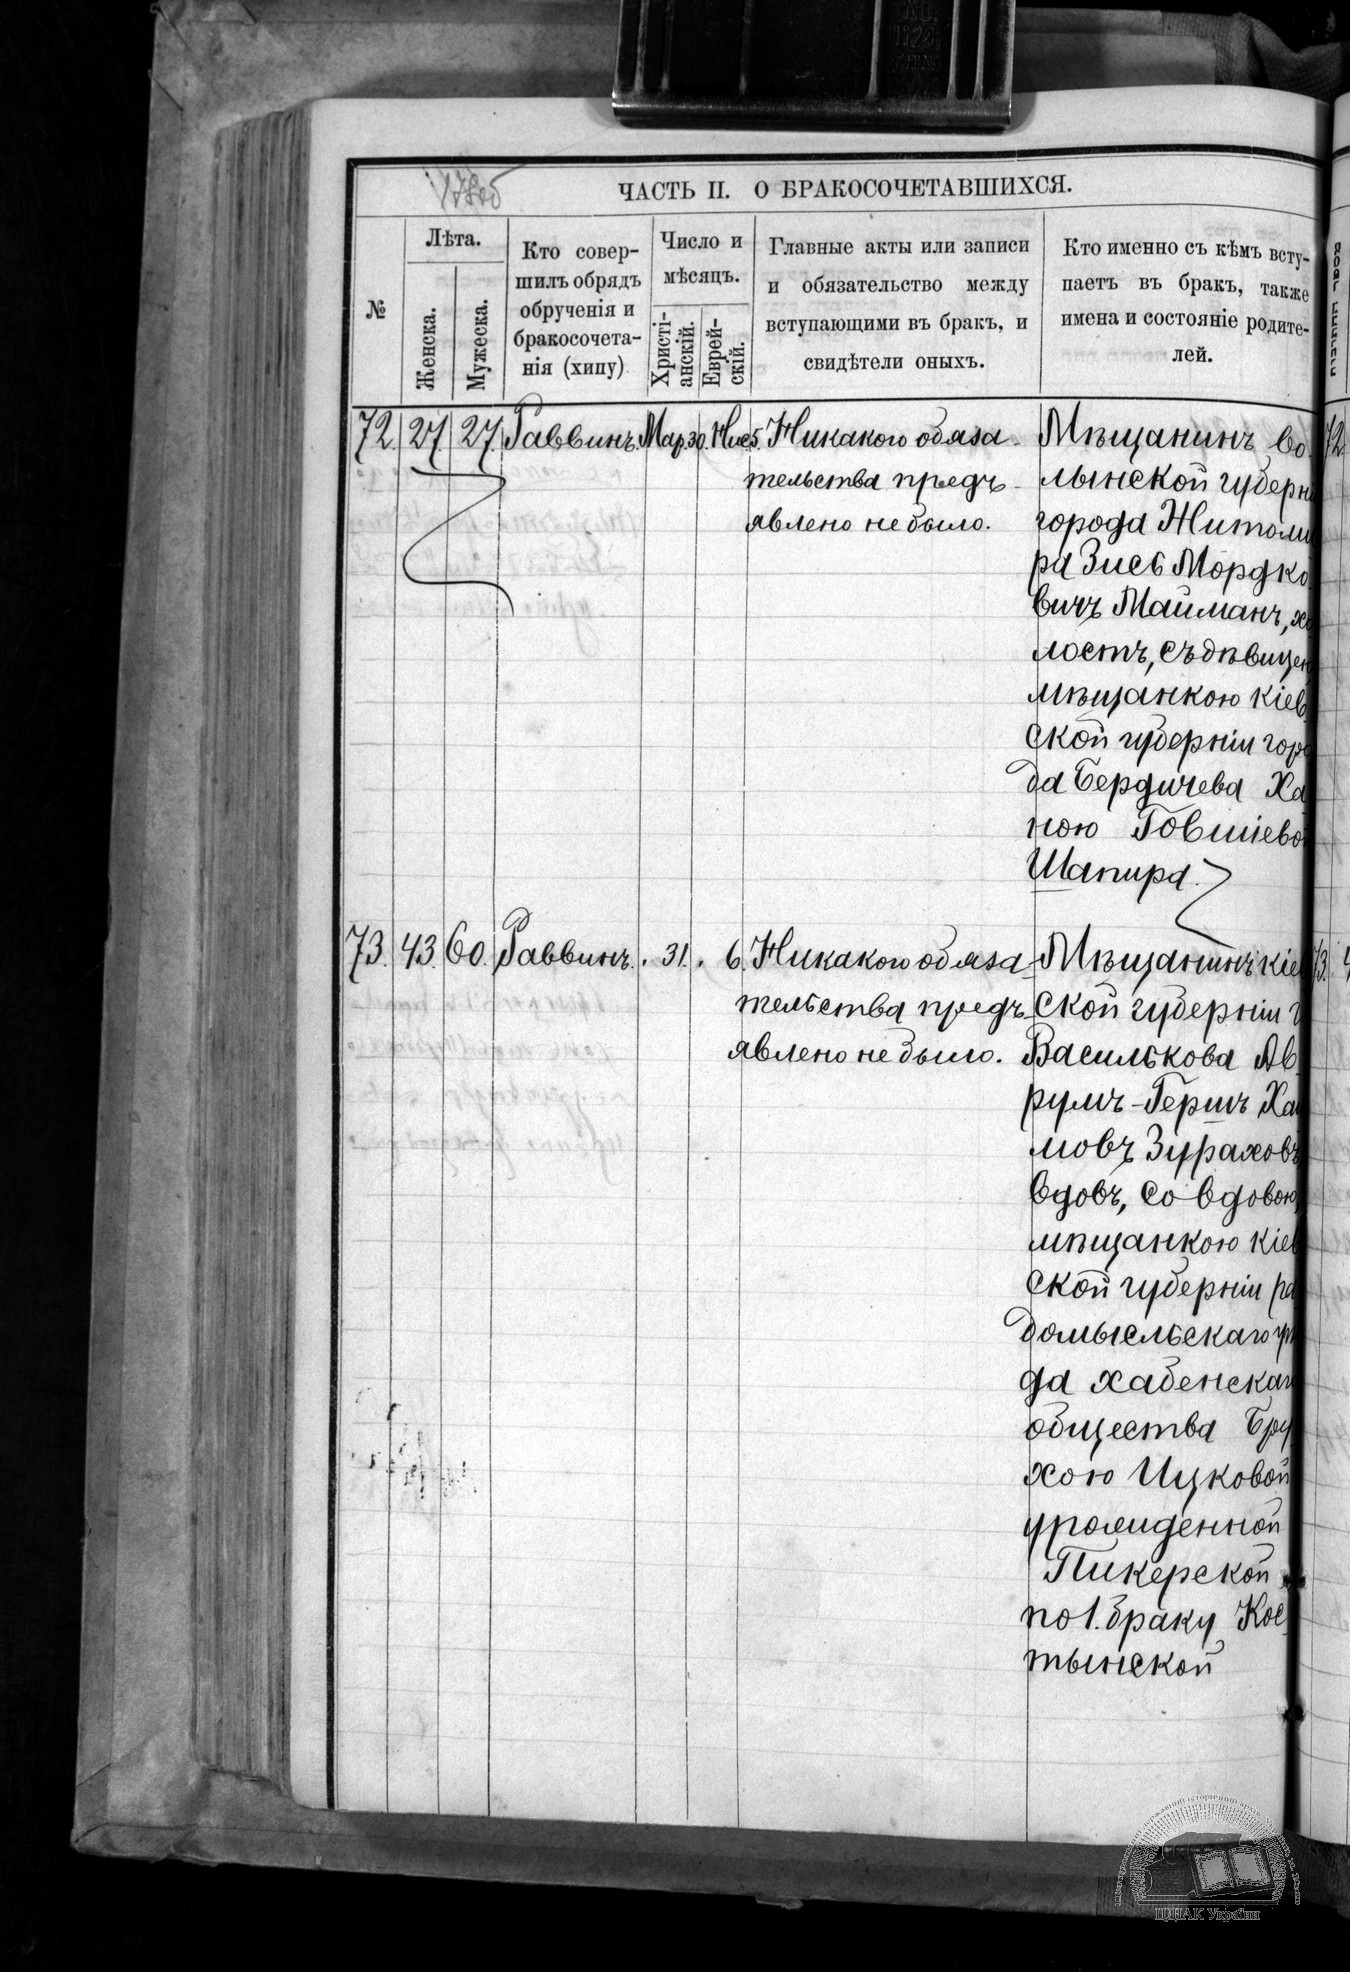 ЧАСТЬ II. О БРАКОСОЧЕТАВШИХСЯ.
№
Лѣта.
Женска.
Мужеска.
Кто совер-
шилъ обрядъ
обрученія и
бракосочета-
нія (хипу)
Число и
мѣсяцъ.
Христі-
анскій.
Еврей-
скій.
Главные акты или записи
и обязательство между
вступающими въ бракъ, и
свидѣтели оныхъ.
Кто именно съ кѣмъ всту-
паетъ въ бракъ, также
имена и состояніе родите-
лей.
72. 27. 27. Раввинъ. Мар. 30. Нис. 5.
Никакого обяза-
тельства предъ-
явлено не было.
Мѣщанинъ Во-
лынской губерн
города Житоми
ра Зись Мордко
вичъ Майманъ, хо
лостъ, съ дѣвицею
мѣщанкою Кіев
ской губерніи горо
да Бердичева Ха
ною Говшіевой
Шапира.
73. 43. 60. Раввинъ. 31. 6.
Никакого обяза-
тельства предъ-
явлено не было.
Мѣщанинъ Кіев
ской губерніи г
Василькова Ав-
румъ-Гершъ Хаи
мовъ Зураховъ
вдовъ, со вдовою
мѣщанкою Кіев
ской губерніи ра
домысльскаго уѣ
да хабенскаго
общества Бру
хою Ицковой
урожденной
Пикерской
по 1. браку Кос-
тынской
72.
73.
ЦДІАК України